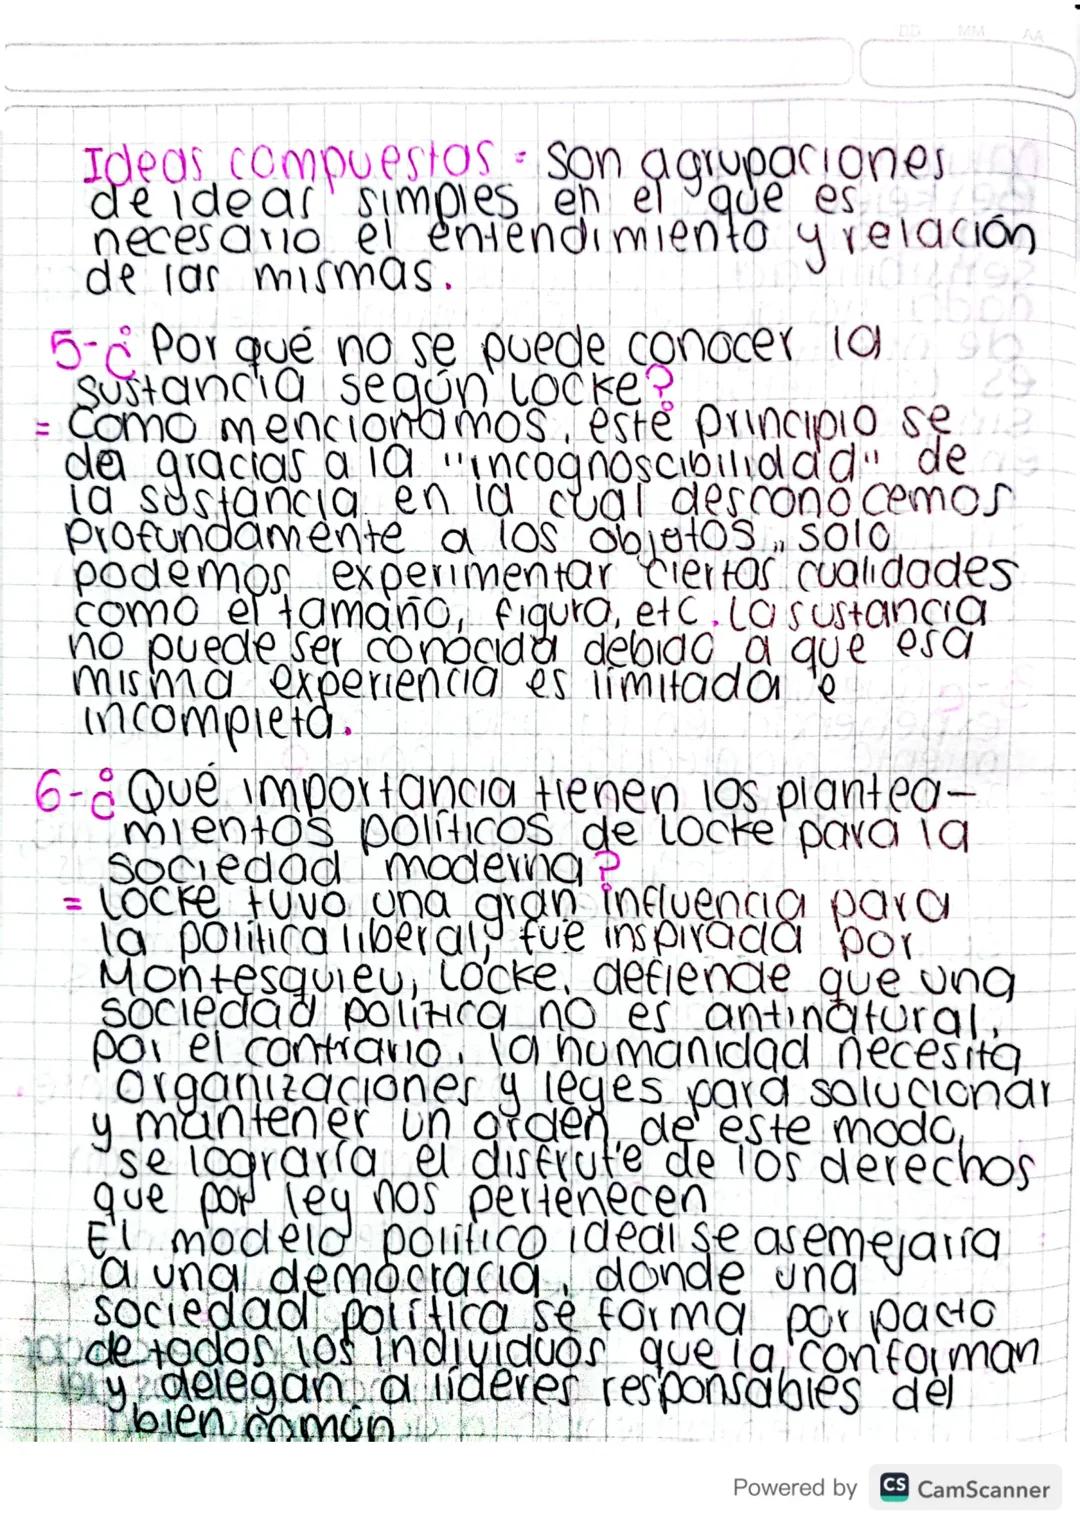 DD MM AA
Ideas compuestas = son agrupaciones
de ideas simples en el que es
necesario el entendimiento y relación
de las mismas.
5-¿Por qué no se puede conocer la
sustancia según Locke?
= Como mencionamos, este principio se
da gracias a la "incognoscibilidad" de
la sustancia en la cual desconocemos
profundamente a los objetos, solo
podemos experimentar ciertas cualidades
como el tamaño, figura, etc. La sustancia
no puede ser conocida debido a que esa
misma experiencia es limitada e
incompleta.
6-¿Qué importancia tienen los plantea-
mientos políticos de Locke para la
sociedad moderna?
= Locke tuvo una gran influencia para
la política liberal, fue inspirada por
Montesquieu, Locke, defiende que una
sociedad política no es antinatural,
por el contrario, la humanidad necesita
organizaciones y leyes para solucionar
y mantener un orden, de este modo,
se lograría el disfrute de los derechos
que por ley nos pertenecen
El modelo político ideal se asemejaría
a una democracia, donde una
sociedad política se forma por pacto
de todos los individuos que la conforman
y delegan a líderes responsables del
bien común
Powered by CS CamScanner